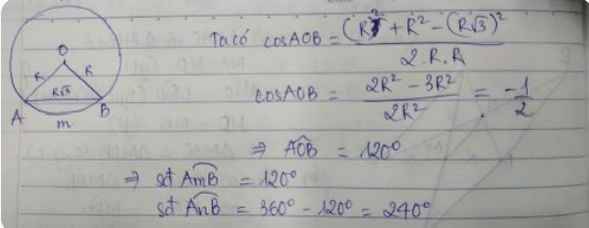 O
R R
R√3
A B
m
Ta có cosAOB = (R² + R² - (R√3)²) / (2.R.R)
cosAOB = (2R² - 3R²) / (2R²) = -1/2
⇒ AOB = 120°
⇒ sđ AmB = 120°
sđ AnB = 360° - 120° = 240°